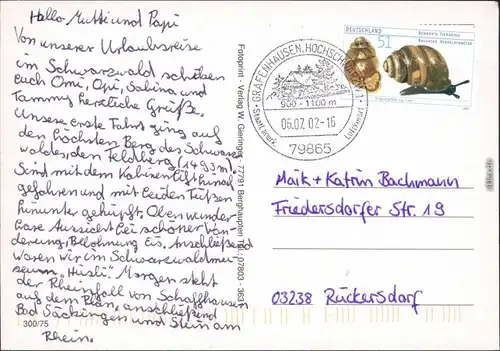 Hallo Mutti und Papi
Von unserer Urlaubsreise
im Schwarzwald schicken
euch Omi, Opi, Sabina und
Tammy herzliche Grüße.
Unsere erste Fahrt ging auf
den höchsten Berg des Schwarz
waldes, den Feldberg (1493m)
Sind mit dem Kabinenlift hinauf
gefahren und mit beiden Füßen
hinunter gehüpft. Oben wunder-
bare Aussicht bei schöner Wan-
derung, Belohnung Eis. Anschließend
waren wir im Schwarzwaldmu-
seum "Hüsli". Morgen steht
der Rheinfall von Schaffhausen
auf dem Plan, anschließend
Bad Säckingen und Stein am
Rhein.
300/75
Fotoprint - Verlag W. Gieringer, 77791 Berghaupten Tel.: 07803 - 363
GRAFENHAUSEN, HOCHSCHWARZWALD
900 - 1100 m
06.07.02-16
Staatl. anerk. Luftkurort
79865
DEUTSCHLAND
51
Maik + Katrin Bachmann
Friedersdorfer Str. 19
03238 Rückersdorf